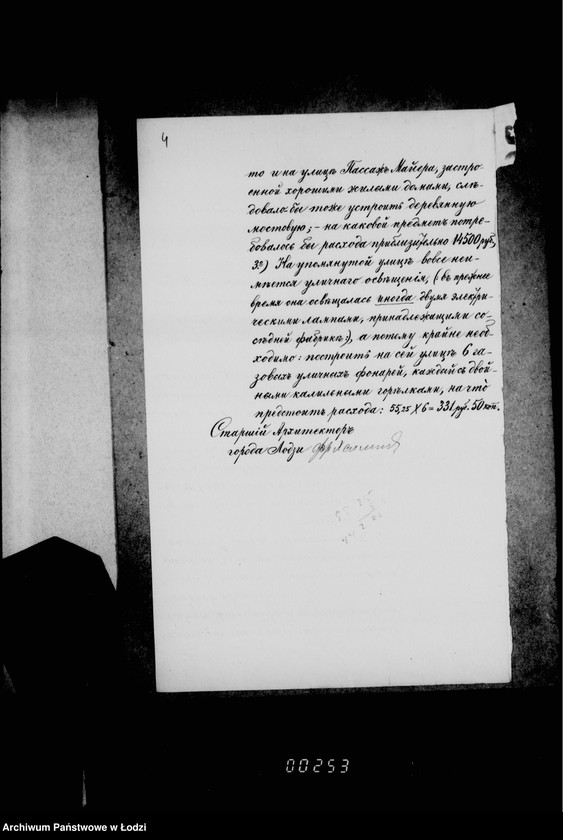 4
то и на улицѣ Пассажъ Майера, застро-
енной хорошими жилыми домами, слѣ-
довало бы тоже устроить деревянную
мостовую; – на каковой предметъ потре-
бовалось бы расхода приблизительно 14500 руб,
3е) На упомянутой улицѣ вовсе неи-
мѣется уличнаго освѣщенія, (: въ прежнее
время она освѣщалась иногда двумя электри-
ческими лампами, принадлежащими со-
сѣдней фабрикѣ:), а потому крайне необ-
ходимо: построить на сей улицѣ 6 га-
зовыхъ уличныхъ фонарей, каждый съ двой-
ными калильными горѣлками, на что
предстоитъ расхода: 55,25 X 6 = 331 руб. 50 коп.
Старшій Архитекторъ
города Лодзи
00253
Archiwum Państwowe w Łodzi